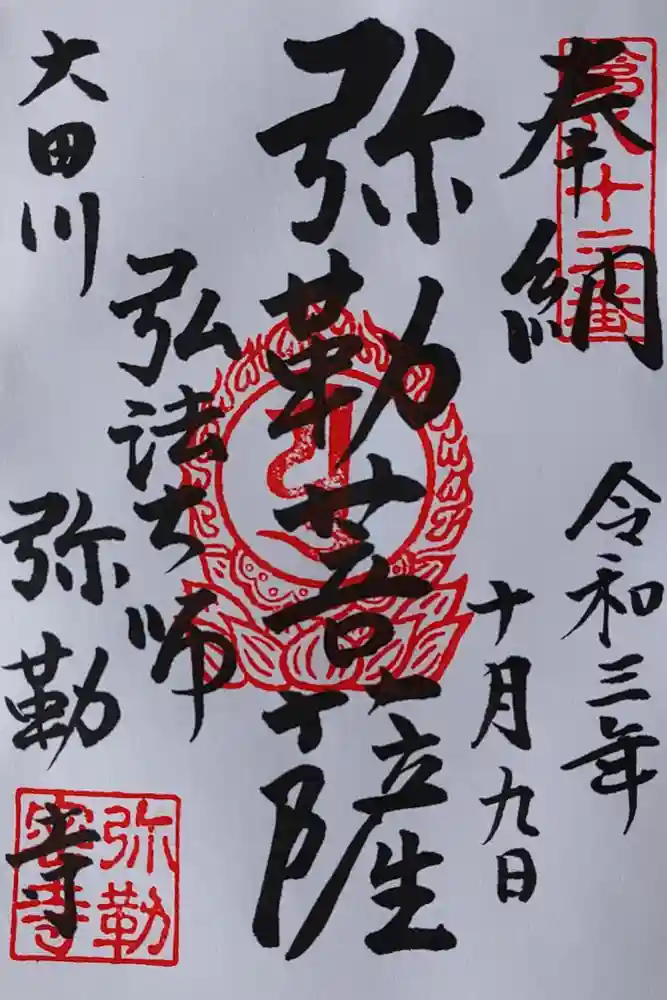 奉納
十三番
令和三年
十月九日
弥勒菩薩
弘法大師
大田川
弥勒寺
弥勒
密寺